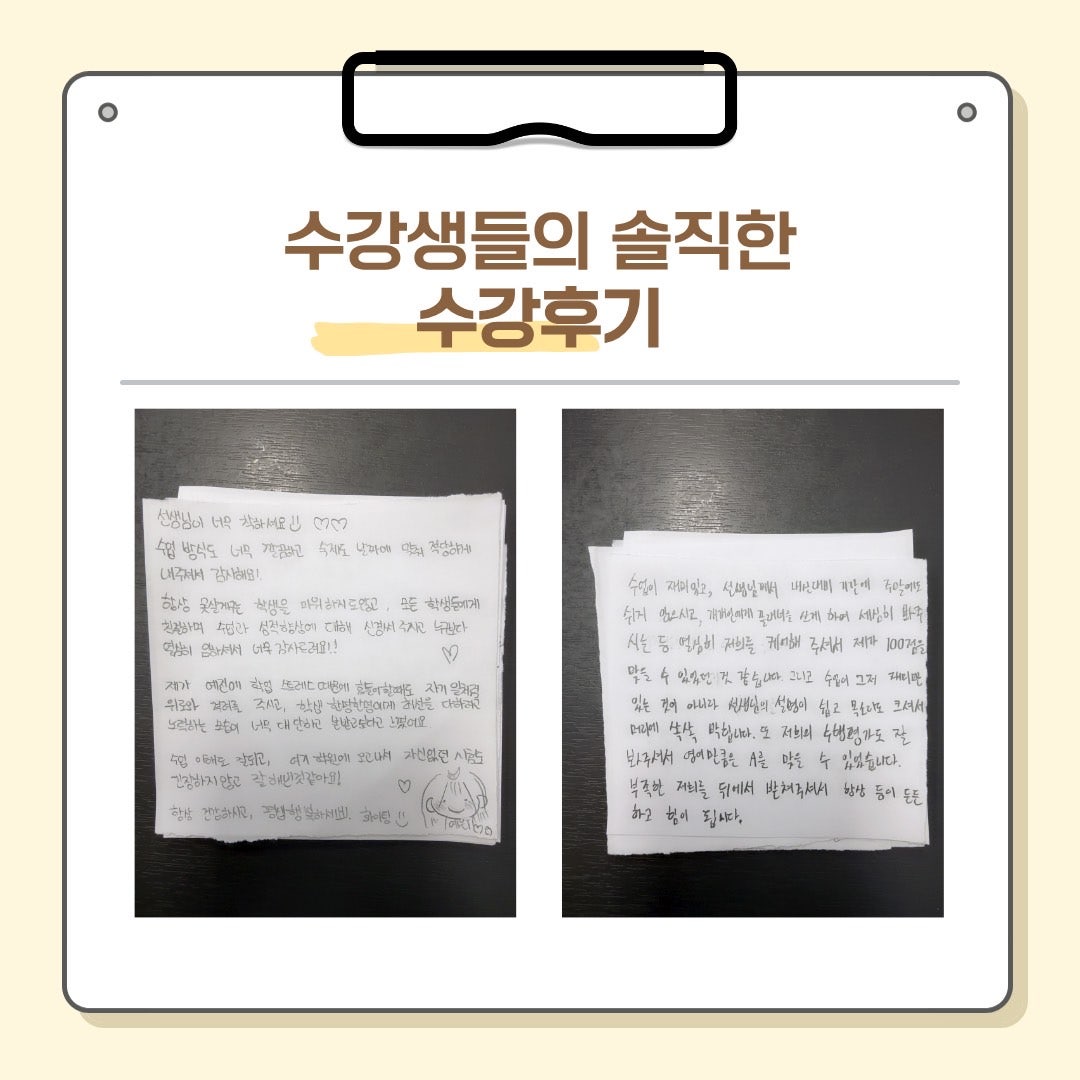 수강생들의 솔직한
수강후기
선생님이 너무 착하세요
수업 방식도 너무 깔끔하고 숙제도 날마다 맞춰 적당하게
내주셔서 감사해요!
항상 못살게구는 학생을 미워하지도않고, 모든 학생들에게
친절하며 수업과 성적향상에 대해 신경써주시고 누구보다
열심히 임하셔서 너무 감사드려요!!
제가 예전에 학업 스트레스때문에 힘들어할때도 자기 일처럼
위로와 격려를 주시고, 학생 한명한명에게 최선을 다하려고
노력하는 모습이 너무 대단하고 본받고싶다고 느꼈어요
수업 이해도 잘되고, 여기 학원에 오고나서 자신없던 시험도
긴장하지않고 잘 해낸것같아요!
항상 건강하시고, 행복하세요! 화이팅
수업이 재미있고, 선생님께서 내신대비 기간에 주말에도
쉬지 않으시고, 개개인에게 플래너를 쓰게 하여 세심히 봐주
시는 등 열심히 저희를 케어해 주셔서 제가 100점을
맞을 수 있었던 것 같습니다. 그리고 수업이 그저 재미만
있는 것이 아니라 선생님의 설명이 쉽고 목소리도 크셔서
머리에 쏙쏙 박힙니다. 또 저희의 수행평가도 잘
봐주셔서 영어만큼은 A를 맞을 수 있었습니다.
부족한 저희를 뒤에서 받쳐주셔서 항상 등이 든든
하고 힘이 됩니다.